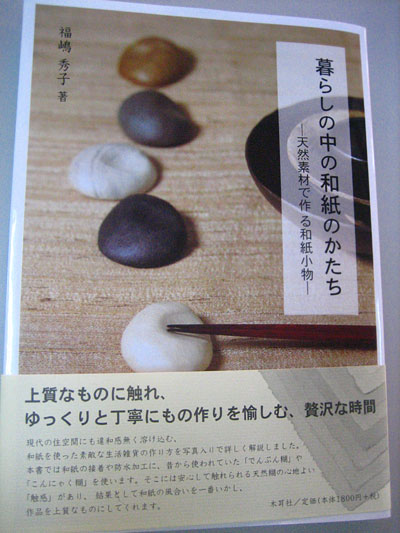 暮らしの中の和紙のかたち
―天然素材で作る和紙小物―
福嶋 秀子 著
上質なものに触れ、
ゆっくりと丁寧にもの作りを愉しむ、贅沢な時間
現代の住空間にも違和感無く溶け込む、
和紙を使った素敵な生活雑貨の作り方を写真入りで詳しく解説しました。
本書では和紙の接着や防水加工に、昔から使われていた「でんぷん糊」や
「こんにゃく糊」を使います。そこには安心して触れられる天然糊の心地よい
「触感」があり、結果として和紙の風合いを一番いかし、
作品を上質なものにしてくれます。
木耳社/定価(本体1800円+税)